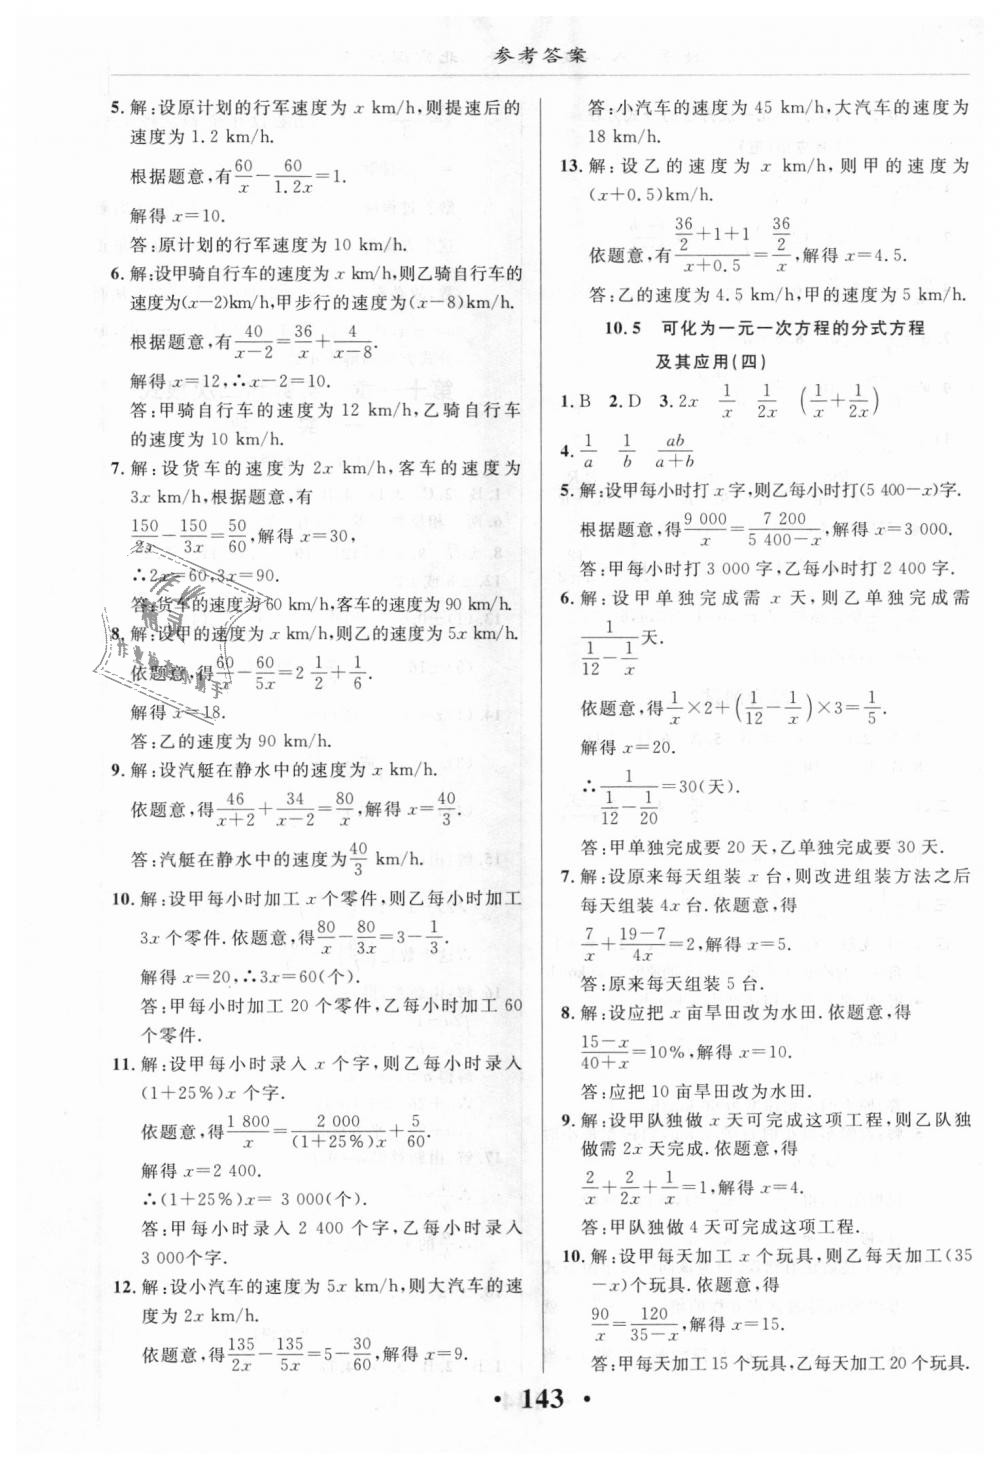 参考答案
5. 解:设原计划的行军速度为 x km/h,则提速后的
速度为 1.2 km/h.
根据题意,有60/x-60/1.2x=1.
解得 x=10.
答:原计划的行军速度为 10 km/h.
6. 解:设甲骑自行车的速度为 x km/h,则乙骑自行车的
速度为(x-2)km/h,甲步行的速度为(x-8)km/h.
根据题意,有40/(x-2)=36/x+4/(x-8).
解得 x=12,∴x-2=10.
答:甲骑自行车的速度为 12 km/h,乙骑自行车
的速度为 10 km/h.
7. 解:设货车的速度为 2x km/h,客车的速度为
3x km/h,根据题意,有
150/2x-150/3x=50/60,解得 x=30,
∴2x=60,3x=90.
答:货车的速度为 60 km/h,客车的速度为 90 km/h.
8. 解:设甲的速度为 x km/h,则乙的速度为 5x km/h.
依题意,得60/x-60/5x=2 1/2+1/6.
解得 x=18.
答:乙的速度为 90 km/h.
9. 解:设汽艇在静水中的速度为 x km/h.
依题意,得46/(x+2)+34/(x-2)=80/x,解得 x=40/3.
答:汽艇在静水中的速度为40/3 km/h.
10. 解:设甲每小时加工 x 个零件,则乙每小时加工
3x 个零件.依题意,得80/x-80/3x=3-1/3.
解得 x=20,∴3x=60(个).
答:甲每小时加工 20 个零件,乙每小时加工 60
个零件.
11. 解:设甲每小时录入 x 个字,则乙每小时录入
(1+25%)x 个字.
依题意,得1 800/x=2 000/(1+25%)x+5/60.
解得 x=2 400.
∴(1+25%)x= 3 000(个).
答:甲每小时录入 2 400 个字,乙每小时录入
3 000个字.
12. 解:设小汽车的速度为 5x km/h,则大汽车的速
度为 2x km/h.
依题意,得135/2x-135/5x=5-30/60,解得 x=9.
答:小汽车的速度为 45 km/h,大汽车的速度为
18 km/h.
13. 解:设乙的速度为 x km/h,则甲的速度为
(x+0.5)km/h.
依题意,有(36/2+1+1)/(x+0.5)=(36/2)/x,解得 x=4.5.
答:乙的速度为 4.5 km/h,甲的速度为 5 km/h.
10.5 可化为一元一次方程的分式方程
及其应用(四)
1. B 2. D 3. 2x 1/x 1/2x (1/x+1/2x)
4. 1/a 1/b ab/(a+b)
5. 解:设甲每小时打 x 字,则乙每小时打(5 400-x)字.
根据题意,得9 000/x=7 200/(5 400-x),解得 x=3 000.
答:甲每小时打 3 000 字,乙每小时打 2 400 字.
6. 解:设甲单独完成需 x 天,则乙单独完成需
1/(1/12-1/x)天.
依题意,得1/x×2+(1/12-1/x)×3=1/5.
解得 x=20.
∴1/(1/12-1/20)=30(天).
答:甲单独完成要 20 天,乙单独完成要 30 天.
7. 解:设原来每天组装 x 台,则改进组装方法之后
每天组装 4x 台.依题意,得
7/x+(19-7)/4x=2,解得 x=5.
答:原来每天组装 5 台.
8. 解:设应把 x 亩旱田改为水田.依题意,得
(15-x)/(40+x)=10%,解得 x=10.
答:应把 10 亩旱田改为水田.
9. 解:设甲队独做 x 天可完成这项工程,则乙队独
做需 2x 天完成.依题意,得
2/x+2/2x+1/x=1,解得 x=4.
答:甲队独做 4 天可完成这项工程.
10. 解:设甲每天加工 x 个玩具,则乙每天加工(35
-x)个玩具.依题意,得
90/x=120/(35-x),解得 x=15.
答:甲每天加工 15 个玩具,乙每天加工 20 个玩具.
• 143 •
作业精灵
作业检查小助手